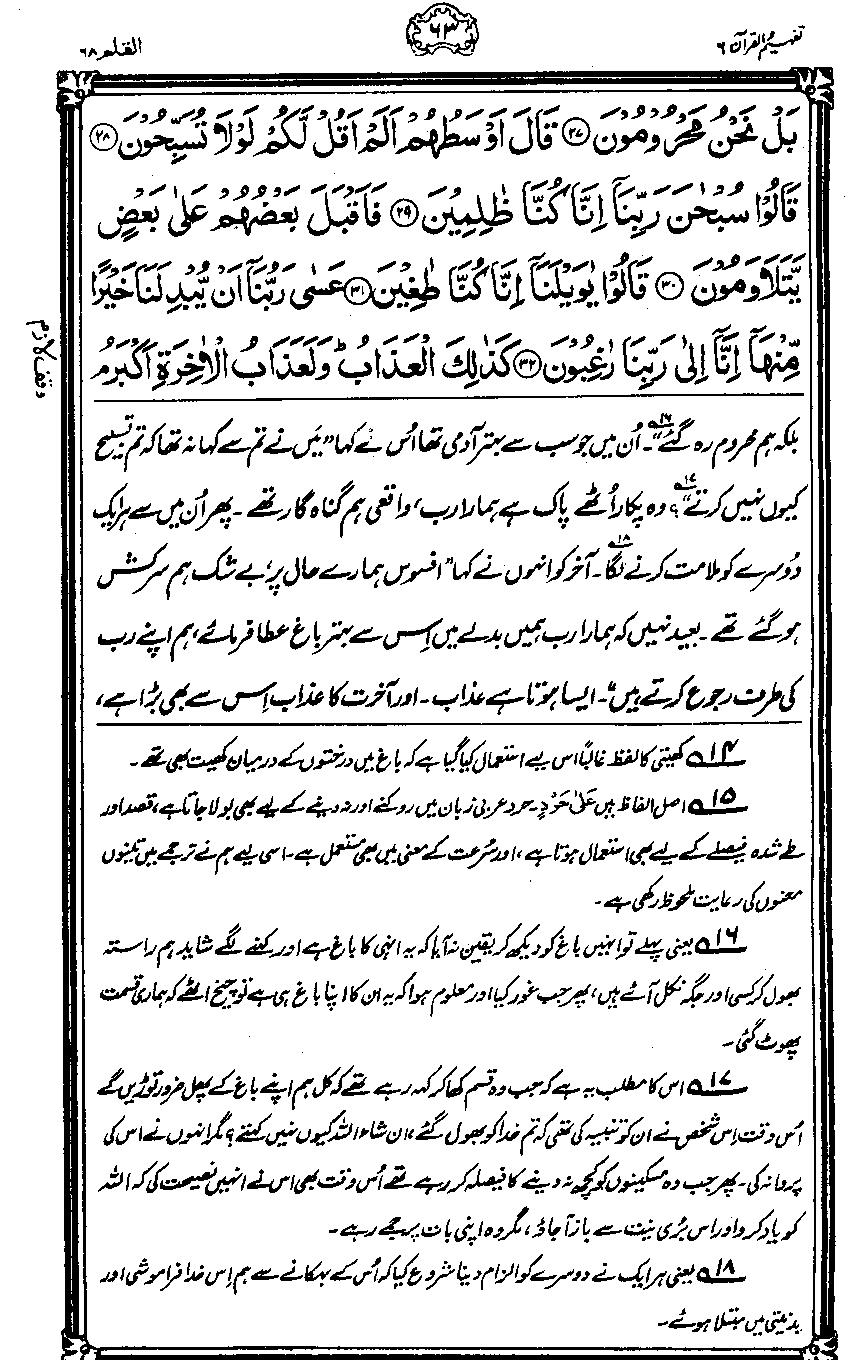 تفہیم القرآن ۶
۶۳
القلم ۶۸
بَلْ نَحْنُ مَحْرُوْمُوْنَ ﴿۲۷﴾ قَالَ اَوْسَطُهُمْ اَلَمْ اَقُلْ لَّكُمْ لَوْلَا تُسَبِّحُوْنَ ﴿۲۸﴾
قَالُوْا سُبْحٰنَ رَبِّنَاۤ اِنَّا كُنَّا ظٰلِمِيْنَ ﴿۲۹﴾ فَاَقْبَلَ بَعْضُهُمْ عَلٰى بَعْضٍ
يَّتَلَاوَمُوْنَ ﴿۳۰﴾ قَالُوْا يٰوَيْلَنَاۤ اِنَّا كُنَّا طٰغِيْنَ ﴿۳۱﴾ عَسٰى رَبُّنَاۤ اَنْ يُّبْدِلَنَا خَيْرًا
مِّنْهَاۤ اِنَّاۤ اِلٰى رَبِّنَا رٰغِبُوْنَ ﴿۳۲﴾ كَذٰلِكَ الْعَذَابُ ؕ وَلَعَذَابُ الْاٰخِرَةِ اَكْبَرُ م
وقف لازم
بلکہ ہم محروم رہ گئے“۔۱۶ اُن میں جو سب سے بہتر آدمی تھا اُس نے کہا ”میں نے تم سے کہا نہ تھا کہ تم تسبیح
کیوں نہیں کرتے“؟۱۷ وہ پکار اُٹھے پاک ہے ہمارا رب، واقعی ہم گناہ گار تھے۔ پھر اُن میں سے ہر ایک
دُوسرے کو ملامت کرنے لگا۔۱۸ آخر کو انہوں نے کہا ”افسوس ہمارے حال پر، بے شک ہم سرکش
ہو گئے تھے۔ بعید نہیں کہ ہمارا رب ہمیں بدلے میں اِس سے بہتر باغ عطا فرمائے، ہم اپنے رب
کی طرف رجوع کرتے ہیں“۔ ایسا ہوتا ہے عذاب۔ اور آخرت کا عذاب اِس سے بھی بڑا ہے،
۱۴ کھیتی کا لفظ غالباً اس لیے استعمال کیا گیا ہے کہ باغ میں درختوں کے درمیان کھیت بھی تھے۔
۱۵ اصل الفاظ ہیں عَلٰی حَرْدٍ۔ حرد عربی زبان میں روکنے اور نہ دینے کے لیے بھی بولا جاتا ہے، قصد اور
طے شدہ فیصلے کے لیے بھی استعمال ہوتا ہے، اور سُرعت کے معنی میں بھی مستعمل ہے۔ اسی لیے ہم نے ترجمے میں تینوں
معنوں کی رعایت ملحوظ رکھی ہے۔
۱۶ یعنی پہلے تو انہیں باغ کو دیکھ کر یقین نہ آیا کہ یہ انہی کا باغ ہے اور کہنے لگے شاید ہم راستہ
بھول کر کسی اور جگہ نکل آئے ہیں، پھر جب غور کیا اور معلوم ہوا کہ یہ ان کا اپنا باغ ہی ہے تو چیخ اٹھے کہ ہماری قسمت
پھوٹ گئی۔
۱۷ اس کا مطلب یہ ہے کہ جب وہ قسم کھا کر کہہ رہے تھے کہ کل ہم اپنے باغ کے پھل ضرور توڑیں گے
اُس وقت اِس شخص نے ان کو تنبیہ کی تھی کہ تم خدا کو بھول گئے، ان شاء اللہ کیوں نہیں کہتے؟ مگر انہوں نے اس کی
پروا نہ کی۔ پھر جب وہ مسکینوں کو کچھ نہ دینے کا فیصلہ کر رہے تھے اُس وقت بھی اس نے انہیں نصیحت کی کہ اللہ
کو یاد کرو اور اس بُری نیت سے باز آجاؤ، مگر وہ اپنی بات پر جمے رہے۔
۱۸ یعنی ہر ایک نے دوسرے کو الزام دینا شروع کیا کہ اُس کے بہکانے سے ہم اِس خدا فراموشی اور
بدنیتی میں مبتلا ہوئے۔